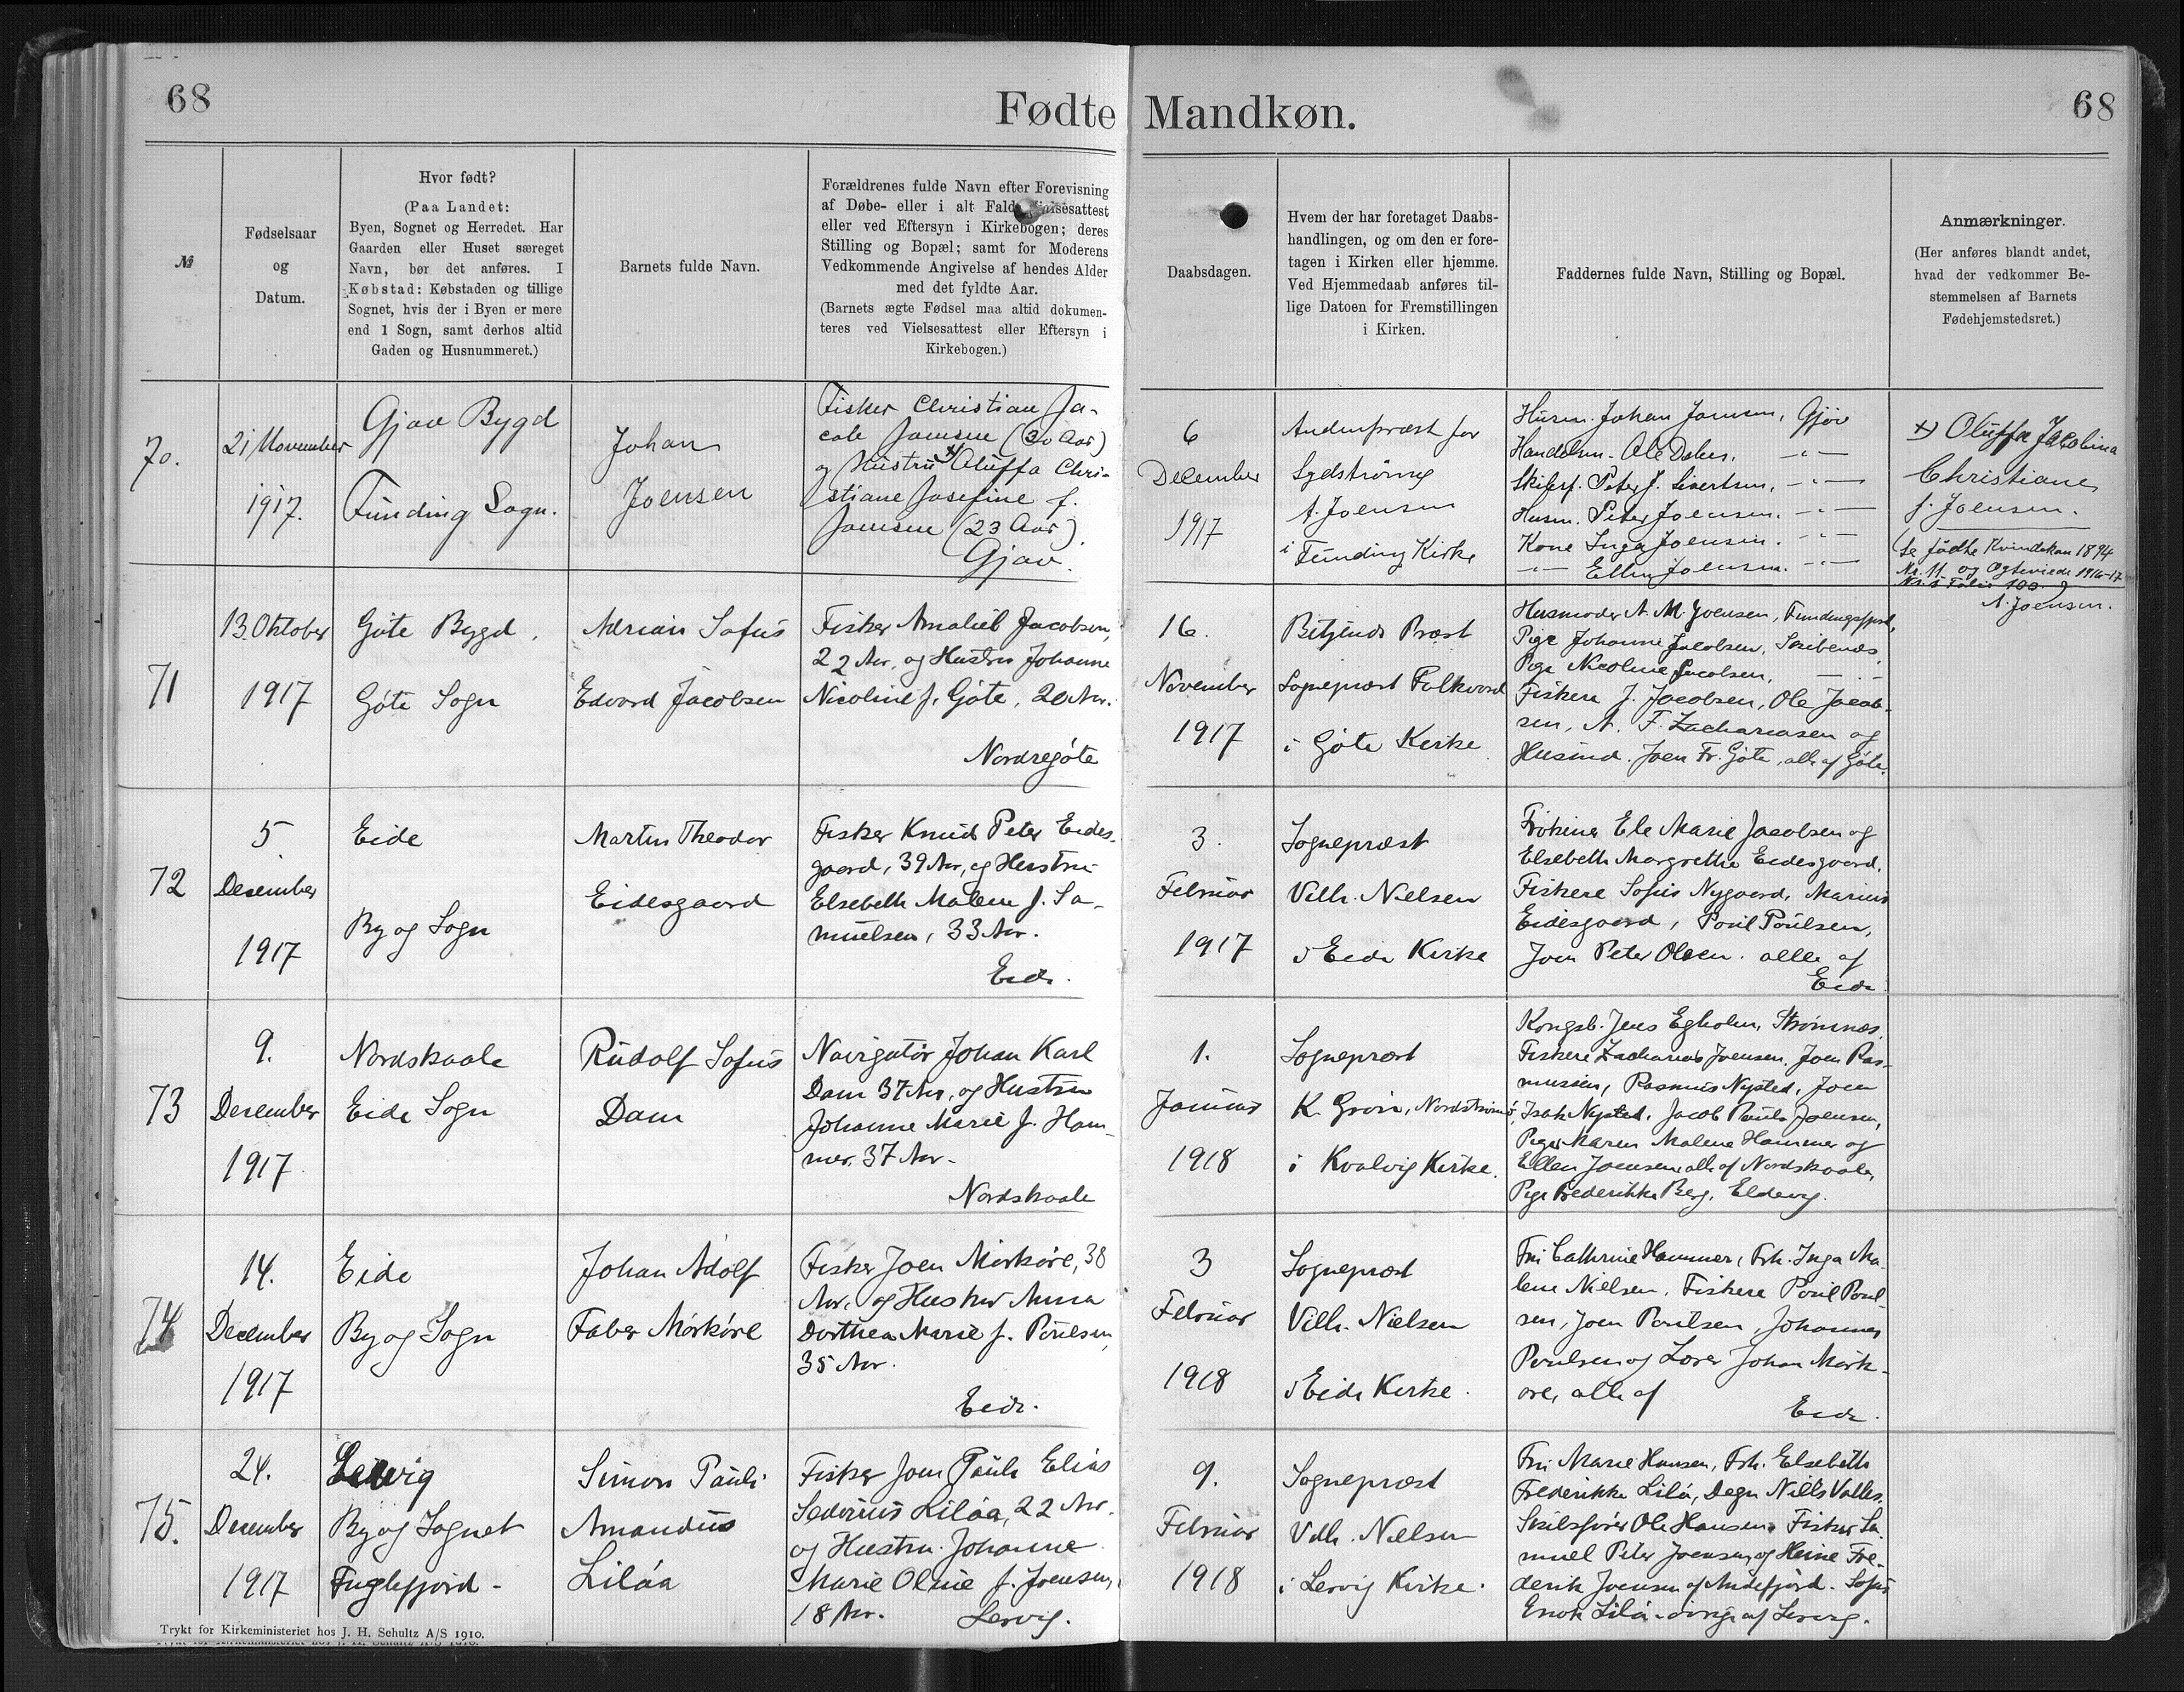 68
Fødte Mandkøn.
68
№
Fødselsaar
og
Datum.
Hvor født?
(Paa Landet:
Byen, Sognet og Herredet. Har
Gaarden eller Huset særeget
Navn, bør det anføres. I
Købstad: Købstaden og tillige
Sognet, hvis der i Byen er mere
end 1 Sogn, samt derhos altid
Gaden og Husnummeret.)
Barnets fulde Navn.
Forældrenes fulde Navn efter Forevisning
af Døbe- eller i alt Fald Vielsesattest
eller ved Eftersyn i Kirkebogen; deres
Stilling og Bopæl; samt for Moderens
Vedkommende Angivelse af hendes Alder
med det fyldte Aar.
(Barnets ægte Fødsel maa altid dokumen-
teres ved Vielsesattest eller Eftersyn i
Kirkebogen.)
Daabsdagen.
Hvem der har foretaget Daabs-
handlingen, og om den er fore-
tagen i Kirken eller hjemme.
Ved Hjemmedaab anføres til-
lige Datoen for Fremstillingen
i Kirken.
Faddernes fulde Navn, Stilling og Bopæl.
Anmærkninger.
(Her anføres blandt andet,
hvad der vedkommer Be-
stemmelsen af Barnets
Fødehjemstedsret.)
70.
21 November
1917.
Gjov Bygd
Funding Sogn.
Johan
Joensen
Fisker Christian Ja-
cob Joensen (30 Aar)
og Hustru x) Oluffa Chri-
stiane Josefine f.
Joensen (23 Aar).
Gjov.
6
December
1917
Andenpræst for
Sydstrømø
A. Joensen
i Funding Kirke
Husm. Johan Joensen, Gjov
Handelsm. Ole Dahm. -"-
Skipsf. Peter J. Sivertsen, -"-
Husm. Peter Joensen. -"-
Kone Inga Joensen. -"-
-"- Ellen Joensen. -"-
x) Oluffa Jacobina
Christiane
f. Joensen.
se fødte Kvindekøn 1894
Nr. 11 og Ægteviede 1916-17
Nr. 5 Folio 100
A. Joensen.
71
13. Oktober
1917
Gøte Bygd,
Gøte Sogn
Adrian Sofus
Edvard Jacobsen
Fisker Amaliel Jacobsen,
22 Aar, og Hustru Johanne
Nicoline f. Gøte, 20 Aar.
Nordregøte
16.
November
1917
Betjende Præst
Sognepræst Falkvard
i Gøte Kirke
Husmoder A. M. Joensen, Fundingsfjord,
Pige Johanne Jacobsen, Skibenæs,
Pige Nicoline Jacobsen, -"-
Fiskere J. Jacobsen, Ole Jacob-
sen, A. F. Zachariasen og
Husmd. Joen Fr. Gøte, alle af Gøte.
72
5
Desember
1917
Eide
By og Sogn
Martin Theodor
Eidesgaard
Fisker Knud Peter Eides-
gaard, 39 Aar, og Hustru
Elsebeth Malene f. Sa-
muelsen, 33 Aar.
Eide.
3.
Februar
1917
Sognepræst
Vilh. Nielsen
i Eide Kirke
Frøkner Ele Marie Jacobsen og
Elsebeth Margrethe Eidesgaard,
Fiskere Sofus Nygaard, Marius
Eidesgaard, Poul Poulsen,
Joen Peter Olsen. alle af
Eide
73
9.
Desember
1917
Nordskaale
Eide Sogn
Rudolf Sofus
Dam
Navigatør Johan Karl
Dam 37 Aar, og Hustru
Johanne Marie f. Ham-
mer, 37 Aar.
Nordskaale
1.
Januar
1918
Sognepræst
K. Grøn, Nordstrømø,
i Kvalvig Kirke.
Kongsb. Jens Egholm, Strømnæs,
Fiskere Zacharias Joensen, Joen Ras-
mussen, Rasmus Nysted, Joen
Isak Nysted, Jacob Pauli Joensen,
Piger Maren Malene Hammer og
Ellen Joensen alle af Nordskaale,
Pige Frederikke Berg, Eldevig.
74
14.
December
1917
Eide
By og Sogn
Johan Adolf
Faber Mørkøre
Fisker Joen Mørkøre, 38
Aar, og Hustru Anna
Dorthea Marie f. Poulsen,
35 Aar.
Eide.
3
Februar
1918
Sognepræst
Vilh. Nielsen
i Eide Kirke.
Fru Cathrine Hammer, Frk. Inga Ma-
lene Nielsen, Fiskere Poul Poul-
sen, Joen Poulsen, Johannes
Poulsen og Lærer Johan Mørk-
øre, alle af
Eide.
75.
24.
Desember
1917
Lervig
By og Sognet
Fuglefjord-
Simon Pauli
Amandus
Lilóa
Fisker Joen Pauli Elias
Severius Lilóa, 22 Aar.
og Hustru Johanne
Marie Oline f. Joensen,
18 Aar. Lervig.
9.
Februar
1918
Sognepræst
Vilh. Nielsen
i Lervig Kirke.
Fru Marie Hansen, Frk. Elsebeth
Frederikke Liló, Degn Niels
Skibsfører Ole Hansen, Fisker Sa-
muel Peter Joensen og Heine Fre-
derik Joensen af Andefjord. Sofus
Enok Lilóa - øvrige af Lervig.
Trykt for Kirkeministeriet hos J. H. Schultz A/S 1910.